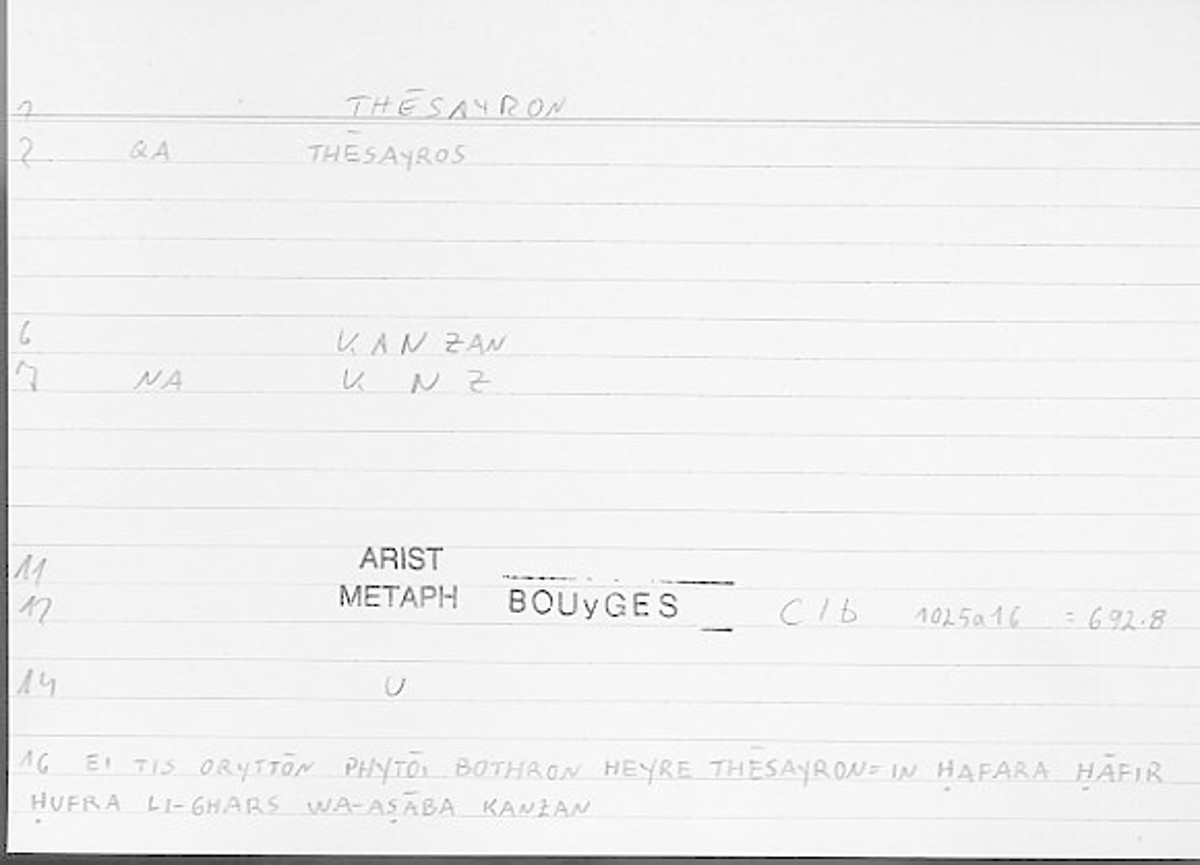 1 THĒSAYRON
2 QA THĒSAYROS
6 KANZAN
7 NA K N Z
11 ARIST
12 METAPH BOUyGES C / b 1025a16 = 692.8
14 U
16 EI TIS ORYTTŌN PHYTŌI BOTHRON HEYRE THĒSAYRON= IN ḤAFARA ḤĀFIR
ḤUFRA LI-GHARS WA-AṢĀBA KANZAN